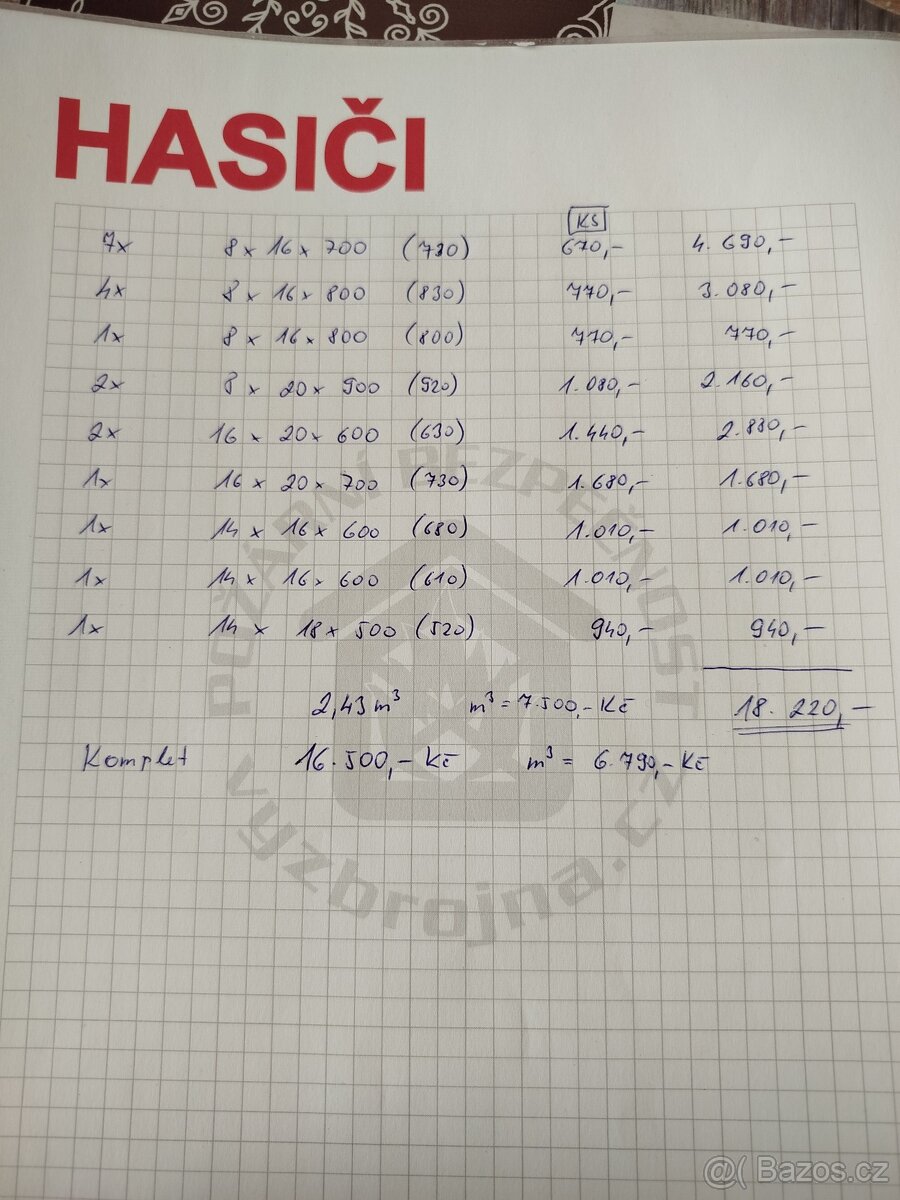 HASIČI
KS
7x 8 x 16 x 700 (730) 670,- 4.690,-
4x 8 x 16 x 800 (830) 770,- 3.080,-
1x 8 x 16 x 800 (800) 770,- 770,-
2x 8 x 20 x 900 (920) 1.080,- 2.160,-
2x 16 x 20 x 600 (630) 1.440,- 2.880,-
1x 16 x 20 x 700 (730) 1.680,- 1.680,-
1x 14 x 16 x 600 (680) 1.010,- 1.010,-
1x 14 x 16 x 600 (610) 1.010,- 1.010,-
1x 14 x 18 x 500 (520) 940,- 940,-
2,43 m³ m³ = 7.500,- Kč 18.220,-
Komplet 16.500,- Kč m³ = 6.790,- Kč
POŽÁRNÍ BEZPEČNOST
vyzbrojna.cz
@( Bazos.cz